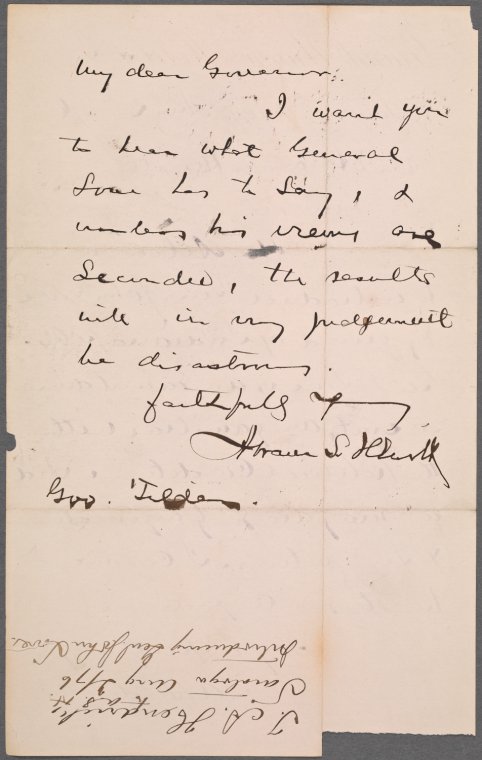 My dear Governor.
I want you
to hear what General
Love has to say, &
unless his views are
seconded, the results
will in my judgement
be disastrous.
faithfully yours
Gov. Tilden.
T. A. Hendricks
Saratoga Aug 2/76
Introducing Genl John Love.